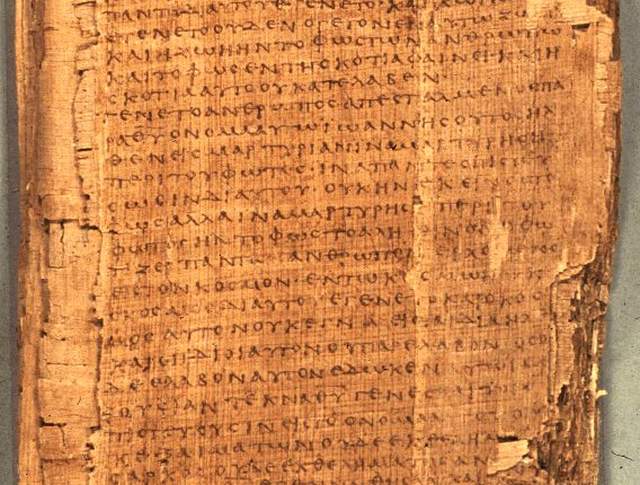 ΠΑΝΤΑ ΔΙ ΑΥΤΟΥ ΕΓΕΝΕΤΟ ΚΑΙ
ΕΓΕΝΕΤΟ ΟΥΔΕΝ Ο ΓΕΓΟΝΕΝ ΑΥΤΩ ΖΩΗ
ΚΑΙ Η ΖΩΗ ΗΝ ΤΟ ΦΩϹ ΤΩΝ ΑΝΘΡΩΠΩΝ
ΚΑΙ ΤΟ ΦΩϹ ΕΝ ΤΗ ϹΚΟΤΙΑ ΦΑΙΝΕΙ ΚΑΙ Η
ϹΚΟΤΙΑ ΑΥΤΟ ΟΥ ΚΑΤΕΛΑΒΕΝ
ΕΓΕΝΕΤΟ ΑΝΘΡΩΠΟϹ ΑΠΕϹΤΑΛΜΕΝΟϹ ΠΑ
ΡΑ ΘΥ ΟΝΟΜΑ ΑΥΤΩ ΙΩΑΝΝΗϹ ΟΥΤΟϹ ΗΛ
ΘΕΝ ΕΙϹ ΜΑΡΤΥΡΙΑΝ ΙΝΑ ΜΑΡΤΥΡΗϹΗ
ΠΕΡΙ ΤΟΥ ΦΩΤΟϹ · ΙΝΑ ΠΑΝΤΕϹ ΠΙϹΤΕΥ
ϹΩϹΙΝ ΔΙ ΑΥΤΟΥ · ΟΥΚ ΗΝ ΕΚΕΙΝΟϹ ΤΟ
ΦΩϹ ΑΛΛΑ ΙΝΑ ΜΑΡΤΥΡΗϹΗ ΠΕΡΙ ΤΟΥ
ΦΩΤΟϹ ΗΝ ΤΟ ΦΩϹ ΤΟ ΑΛΗΘΙΝΟΝ Ο ΦΩ
ΤΙΖΕΙ ΠΑΝΤΑ ΑΝΘΡΩΠΟΝ ΕΡΧΟΜΕΝΟΝ
ΕΙϹ ΤΟΝ ΚΟϹΜΟΝ · ΕΝ ΤΩ ΚΟϹΜΩ ΗΝ Κ
ϹΜΟϹ ΔΙ ΑΥΤΟΥ ΕΓΕΝΕΤΟ ΚΑΙ Ο ΚΟϹ
ΜΟϹ ΑΥΤΟΝ ΟΥΚ ΕΓΝΩ ΕΙϹ ΤΑ ΙΔΙΑ ΗΛ
ΚΑΙ ΟΙ ΙΔΙΟΙ ΑΥΤΟΝ ΟΥ ΠΑΡΕΛΑΒΟΝ ΟϹΟΙ
ΔΕ ΕΛΑΒΟΝ ΑΥΤΟΝ ΕΔΩΚΕΝ ΑΥΤΟΙϹ Ε
ΞΟΥϹΙΑΝ ΤΕΚΝΑ ΘΥ ΓΕΝΕϹΘΑΙ ΤΟΙϹ
ΠΙϹΤΕΥΟΥϹΙΝ ΕΙϹ ΤΟ ΟΝΟΜΑ
Κ ΕΞ ΑΙΜΑΤΩΝ ΟΥΔΕ ΕΚ ΘΕΛΗΜΑ
ϹΑΡΚΟϹ ΟΥΔΕ ΕΚ ΘΕΛΗΜΑΤΟϹ ΑΝ